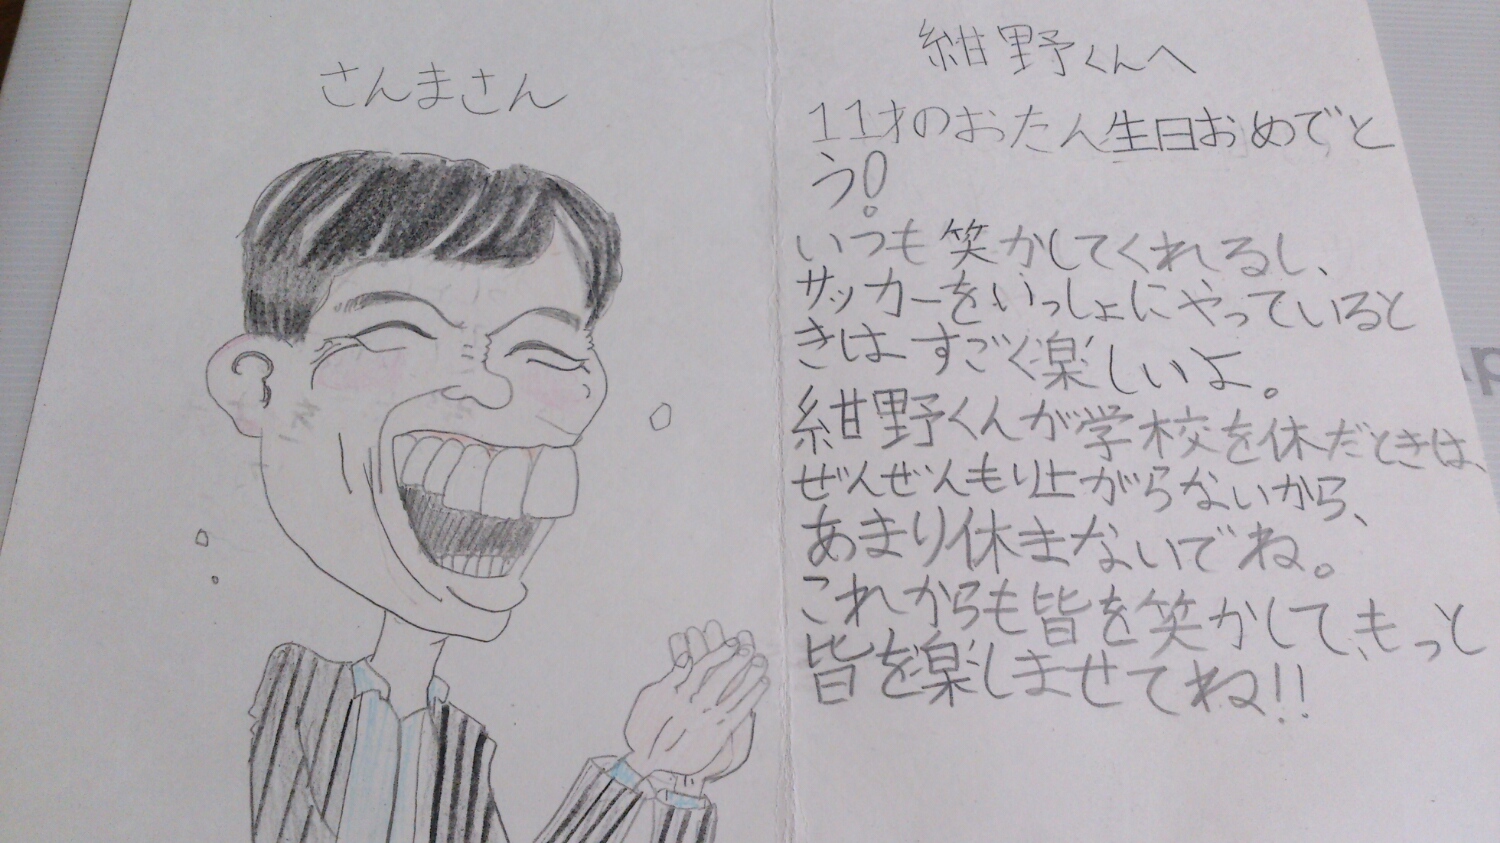 さんまさん
紺野くんへ
11才のおたん生日おめでと
う!
いつも笑かしてくれるし、
サッカーをいっしょにやっていると
きはすごく楽しいよ。
紺野くんが学校を休だときは、
ぜんぜんもり上がらないから、
あまり休まないでね。
これからも皆を笑かして、もっと
皆を楽しませてね!!